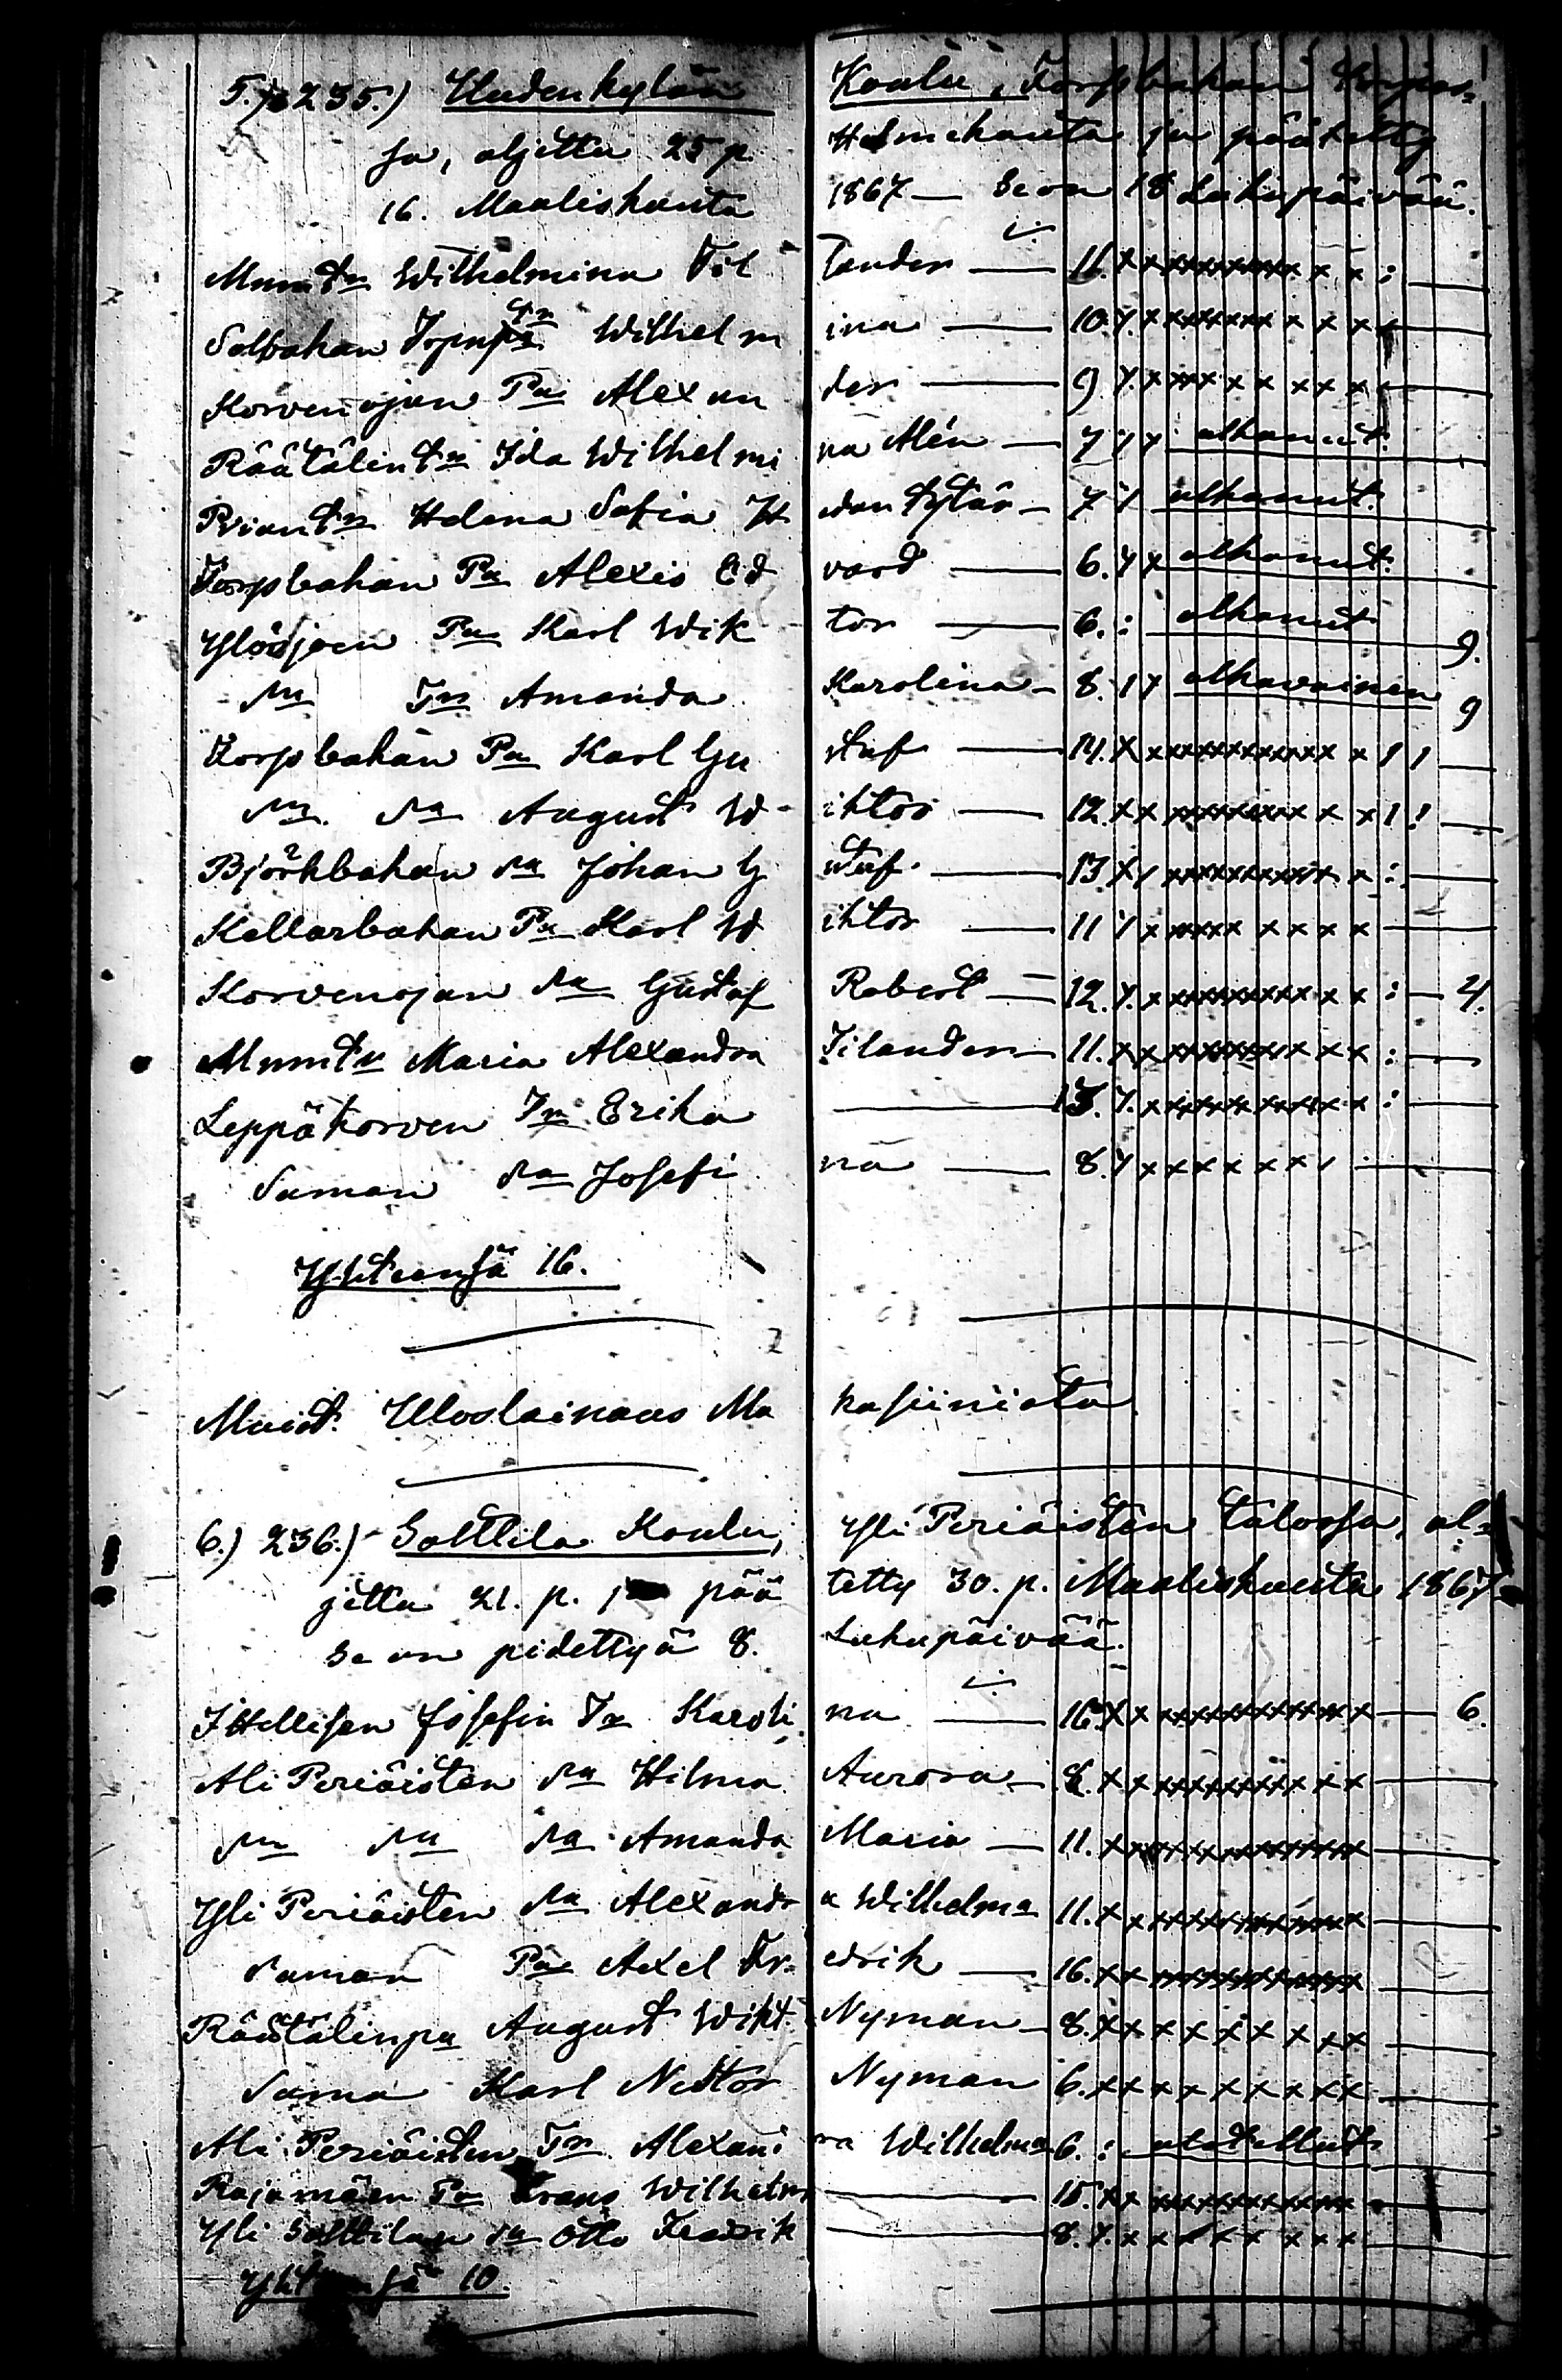 5.) 235.) Uudenkylän Koulu, Torpbakan
sa, aljettu 25 p Helmekuuta ja päätetty
16. Maaliskuuta 1867 — Se on 18 Lukupäivää.
Wilhelmina Filander — 11. xxxxxxxxxxxx:
Wilhelmina — 10. xxxxxxxxxxx
Korvenojan Pa Alexander — 9 xxxxxxxxxx
Räätälin Tr Ida Wilhelmina Alén — 7 alkanut.
Helena Sofia tytär — 7 alkanut.
Torpbakan Pa Alexis Edvard — 6. alkanut.
Ylösjoen Pa Karl Wiktor — 6. : alkanut 9.
Tr Amanda Karolina — 8. alkavainen 9
Torpbakan Pa Karl Gustaf — 14. xxxxxxxxxxxx
August Wihtor — 12. xxxxxxxxxxxx
Björkbakan Johan Gustaf — 13 xxxxxxxxxxx :
Kellarbakan Pa Karl Wihtor — 11 xxxxxxxxxx
Korvenojan Gustaf Robert — 12. xxxxxxxxxxx : — 4.
Maria Alexandra Filander — 11. xxxxxxxxxxx :
Leppäkorven Tr Erika — 13. xxxxxxxxxxx :
Saman Josefina — 8. xxxxxxxx
Yhteensä 16.
Muist. Uloslainaus Makasiinista
6.) 236.) Solttila Koulu, Yli Periäisten talossa, al=
jettu 21. p. ja päätetty 30. p. Maaliskuuta 1867
Se on pidettyä 8. Lukupäivää.
Josefin Tr Karolina — 16. xxxxxxxxxxxx — 6.
Ali Periäisten Hilma Aurora — 8. xxxxxxxxxxxx
Amanda Maria — 11. xxxxxxxxxxxx
Yli Periäisten Alexandra Wilhelma 11. xxxxxxxxxxxx
Saman Pa Axel Fredrik — 16. xxxxxxxxxxxx
Räätälin pa August Wikt. Nyman — 8. xxxxxxxxx
Sama Karl Nestor Nyman 6. xxxxxxxxx
Ali Periäisten Tr Wilhelma 6. :
Rajamäen Pa Frans Wilhelm — 15. xxxxxxxxxxxx
Yli Solttilan Otto Fredrik — 8. xxxxxxxxx
Yhteensä 10.